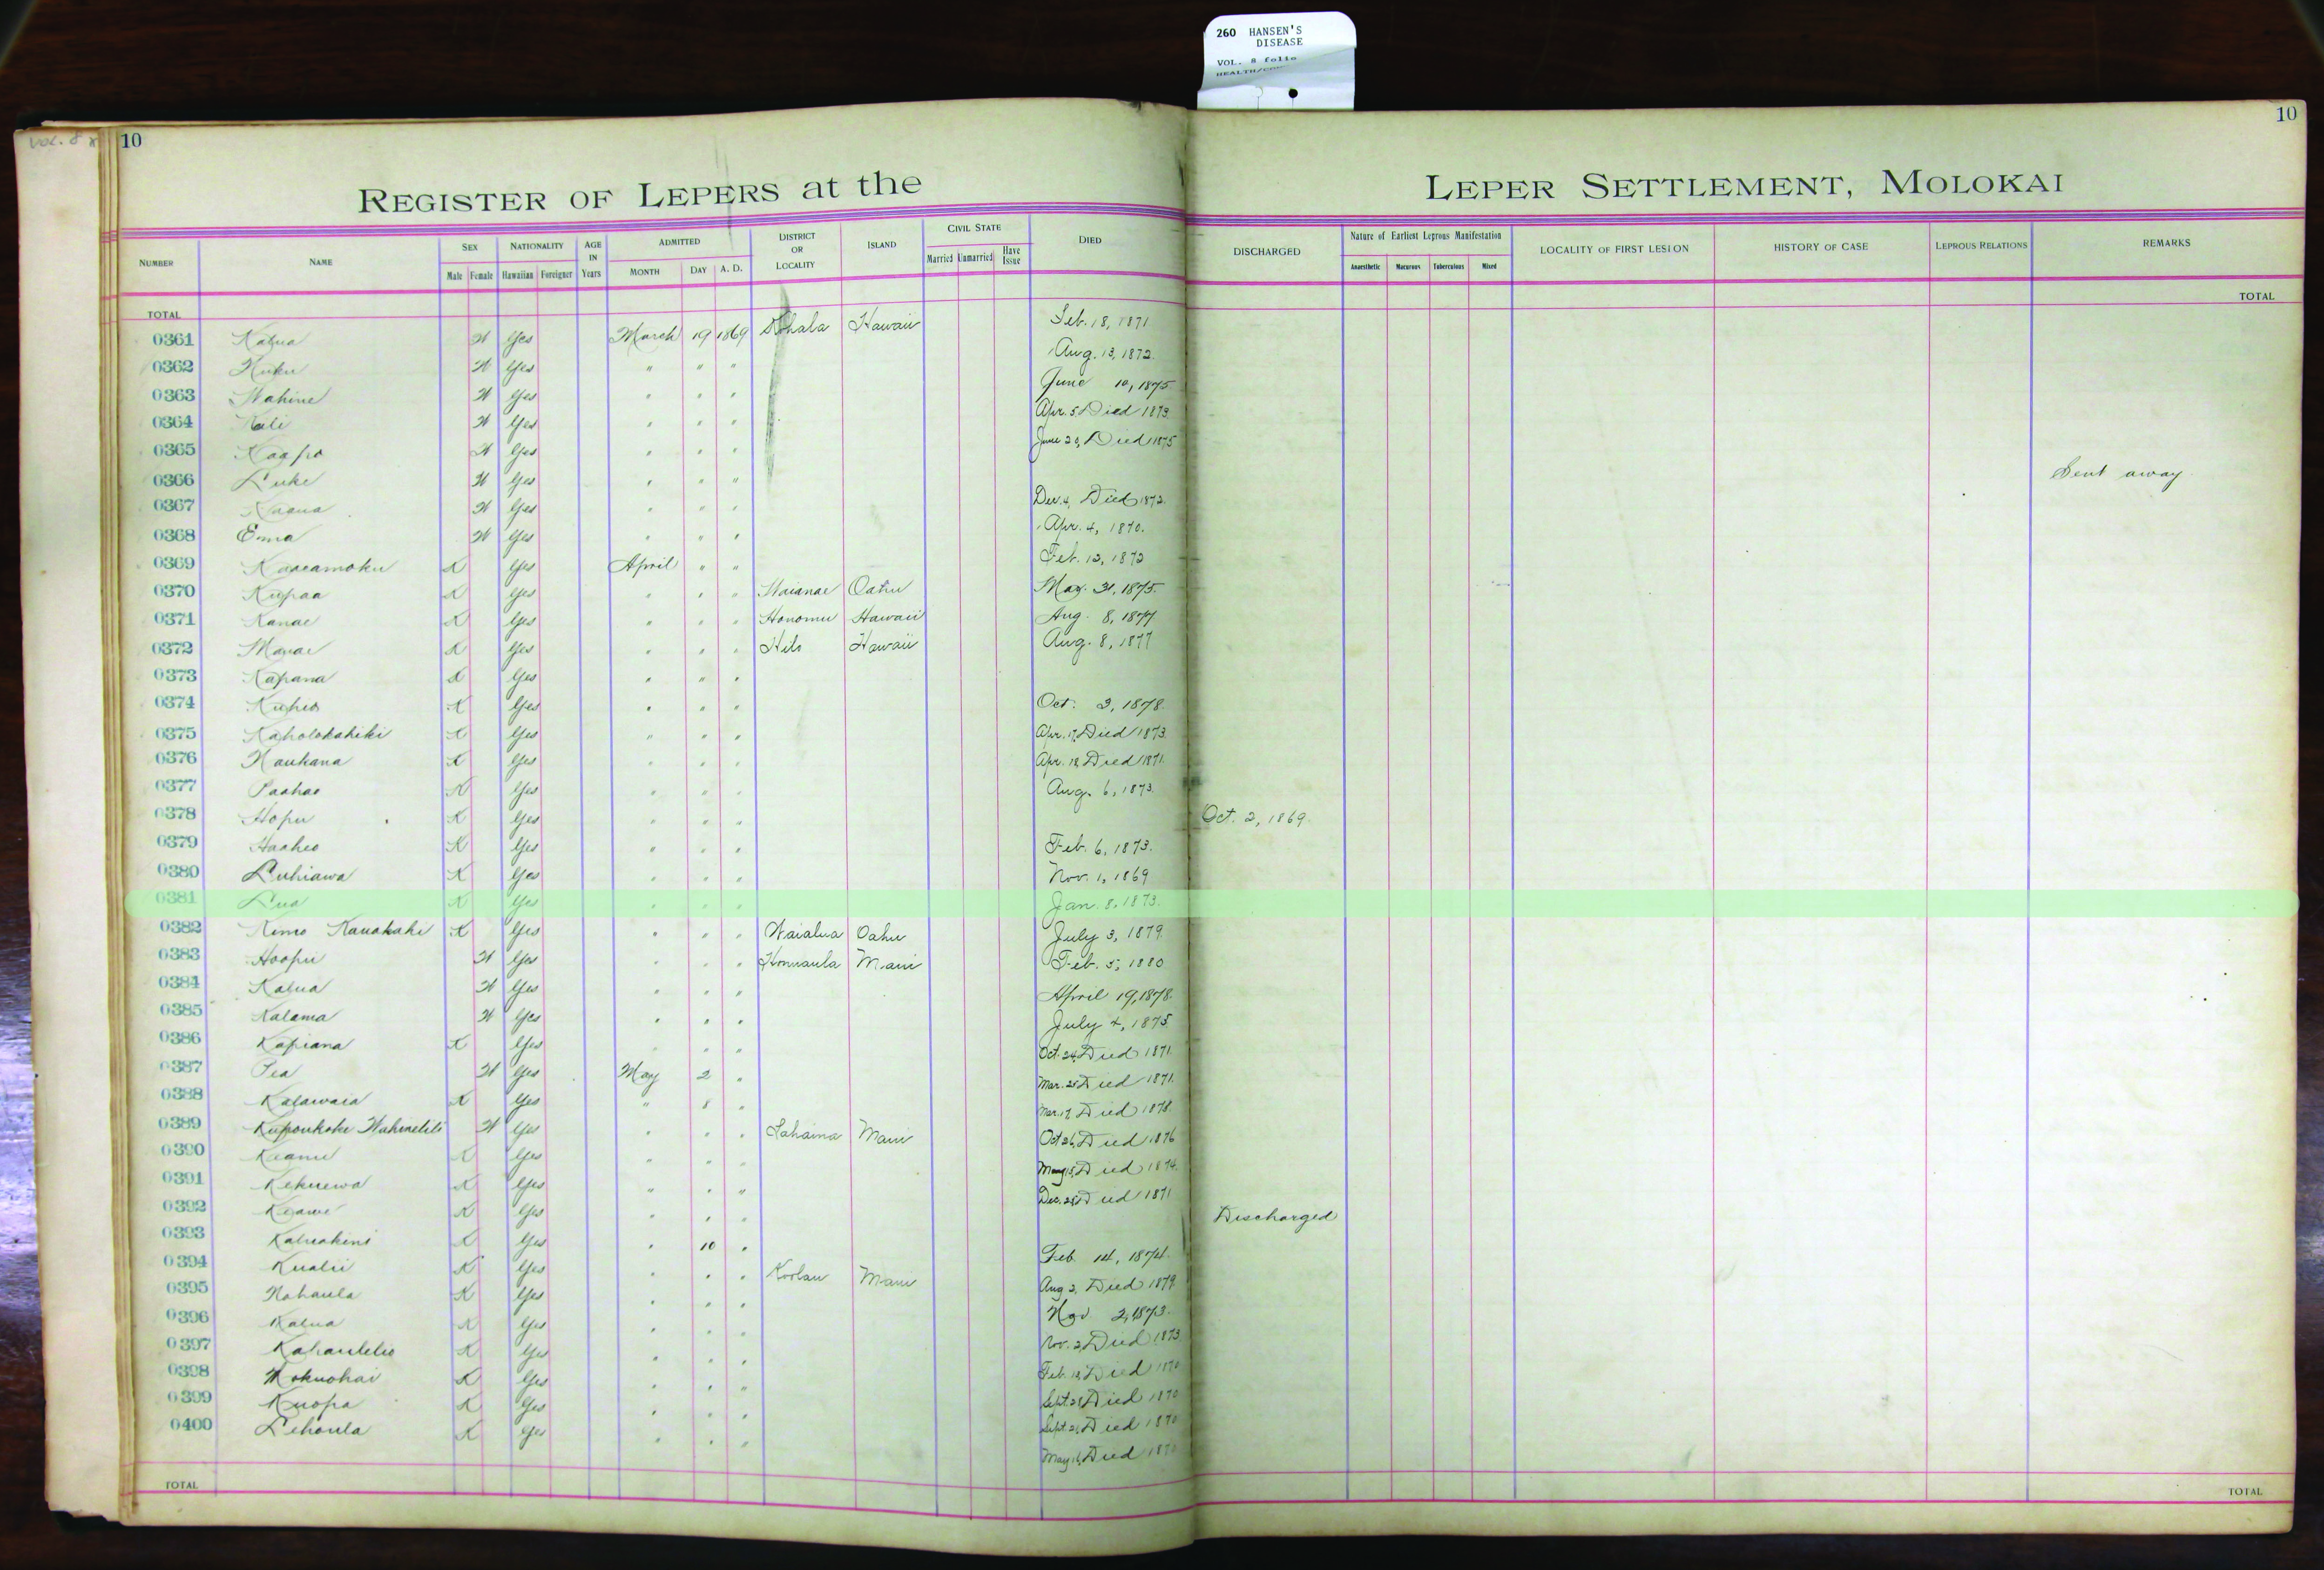 260 HANSEN'S
DISEASE
VOL. 8 folio
VOL. 8
10
10
REGISTER OF LEPERS at the LEPER SETTLEMENT, MOLOKAI
NUMBER NAME SEX NATIONALITY AGE IN Years ADMITTED DISTRICT OR LOCALITY ISLAND CIVIL STATE DIED DISCHARGED Nature of Earliest Leprous Manifestation LOCALITY OF FIRST LESION HISTORY OF CASE LEPROUS RELATIONS REMARKS
Male Female Hawaiian Foreigner MONTH DAY A. D. Married Unmarried Have Issue Anaesthetic Macurous Tuberculous Mixed
TOTAL TOTAL
0361 Kalua W Yes March 19 1869 Kohala Hawaii Feb. 18, 1871
0362 Kuku W Yes " " " Aug. 13, 1872.
0363 Wahine W Yes " " " June 10, 1875
0364 Kali W Yes " " " Apr. 5 Died 1873.
0365 Kaapo W Yes " " " June 20, Died 1875
0366 Luke W Yes " " " Sent away
0367 W Yes " " " Dec. 4, Died 1872.
0368 Emma W Yes " " " Apr. 4, 1870.
0369 Kaaeamoku K Yes April " " Feb. 12, 1872
0370 Kupaa K Yes " " " Waianae Oahu May. 31, 1875.
0371 Kanae K Yes " " " Honomu Hawaii Aug. 8, 1877
0372 K Yes " " " Hilo Hawaii Aug. 8, 1877
0373 Kapana K Yes " " "
0374 Kuheo K Yes " " " Oct. 3, 1878.
0375 Kaholokahiki K Yes " " " Apr. 17, Died 1873.
0376 Naukana K Yes " " " Apr. 18 Died 1871.
0377 Paahao K Yes " " " Aug. 6, 1873.
0378 Hopu K Yes " " " Oct. 2, 1869.
0379 Haaheo K Yes " " " Feb. 6, 1873.
0380 Luhiawa K Yes " " " Nov. 1, 1869
0381 Lua K Yes " " " Jan. 8, 1873.
0382 Kimo Kauakahi K Yes " " " Waialua Oahu July 3, 1879.
0383 Hoopii W Yes " " " Honuaula Maui Feb. 5, 1880
0384 Kalua W Yes " " " April 19, 1878.
0385 Kalama W Yes " " " July 4, 1875
0386 Kapiana K Yes " " " Oct. 24, Died 1871.
0387 Pea W Yes May 2 " Mar. 25 Died 1871.
0388 Kalawaia K Yes " 8 " Mar. 17, Died 1878.
0389 W Yes " " " Lahaina Maui Oct 26, Died 1876
0390 Keanu K Yes " " " May 15, Died 1874.
0391 Kekuewa K Yes " " " Dec. 25 Died 1871
0392 Keawe K Yes " " " Discharged
0393 Kaluakini K Yes " 10 " Feb. 14, 1874.
0394 Kualii K Yes " " " Koolau Maui Aug 2, Died 1879.
0395 Nahaula K Yes " " " Nov 2, 1873.
0396 Kalua K Yes " " " Nov. 2, Died 1873
0397 Kahaulelio K Yes " " " Feb. 18, Died 1870
0398 Mokuohai K Yes " " " Sept. 28 Died 1870
0399 Kuopa K Yes " " " Sept. 21, Died 1870
0400 Lehoula K Yes " " " May 16, Died 1870
TOTAL TOTAL